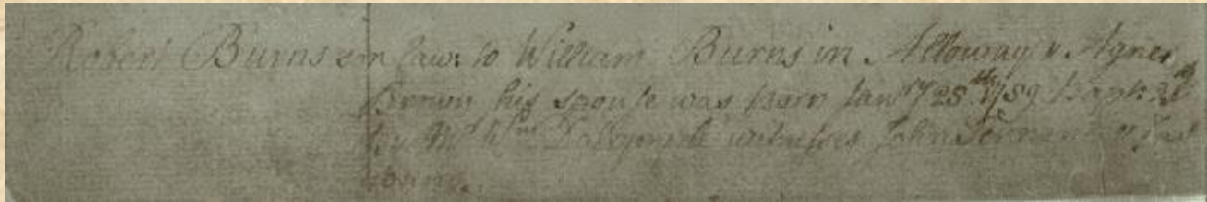 Robert Burns son law: to William Burns in Alloway & Agnes
Brown his spouse was born Janry 25th 1759 bapt 26th
by Mr Wm Dalrymple witnesses John Tennant & Jas
young.